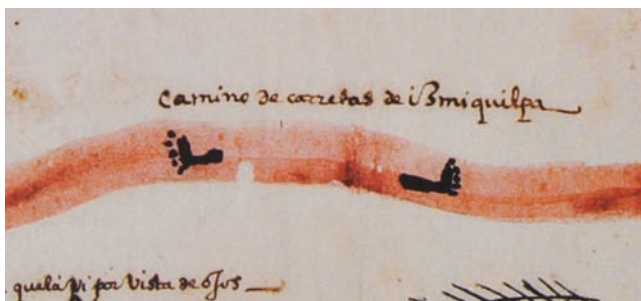 Camino de carretas de iSmiquilpa
quela vi por vista de ojos